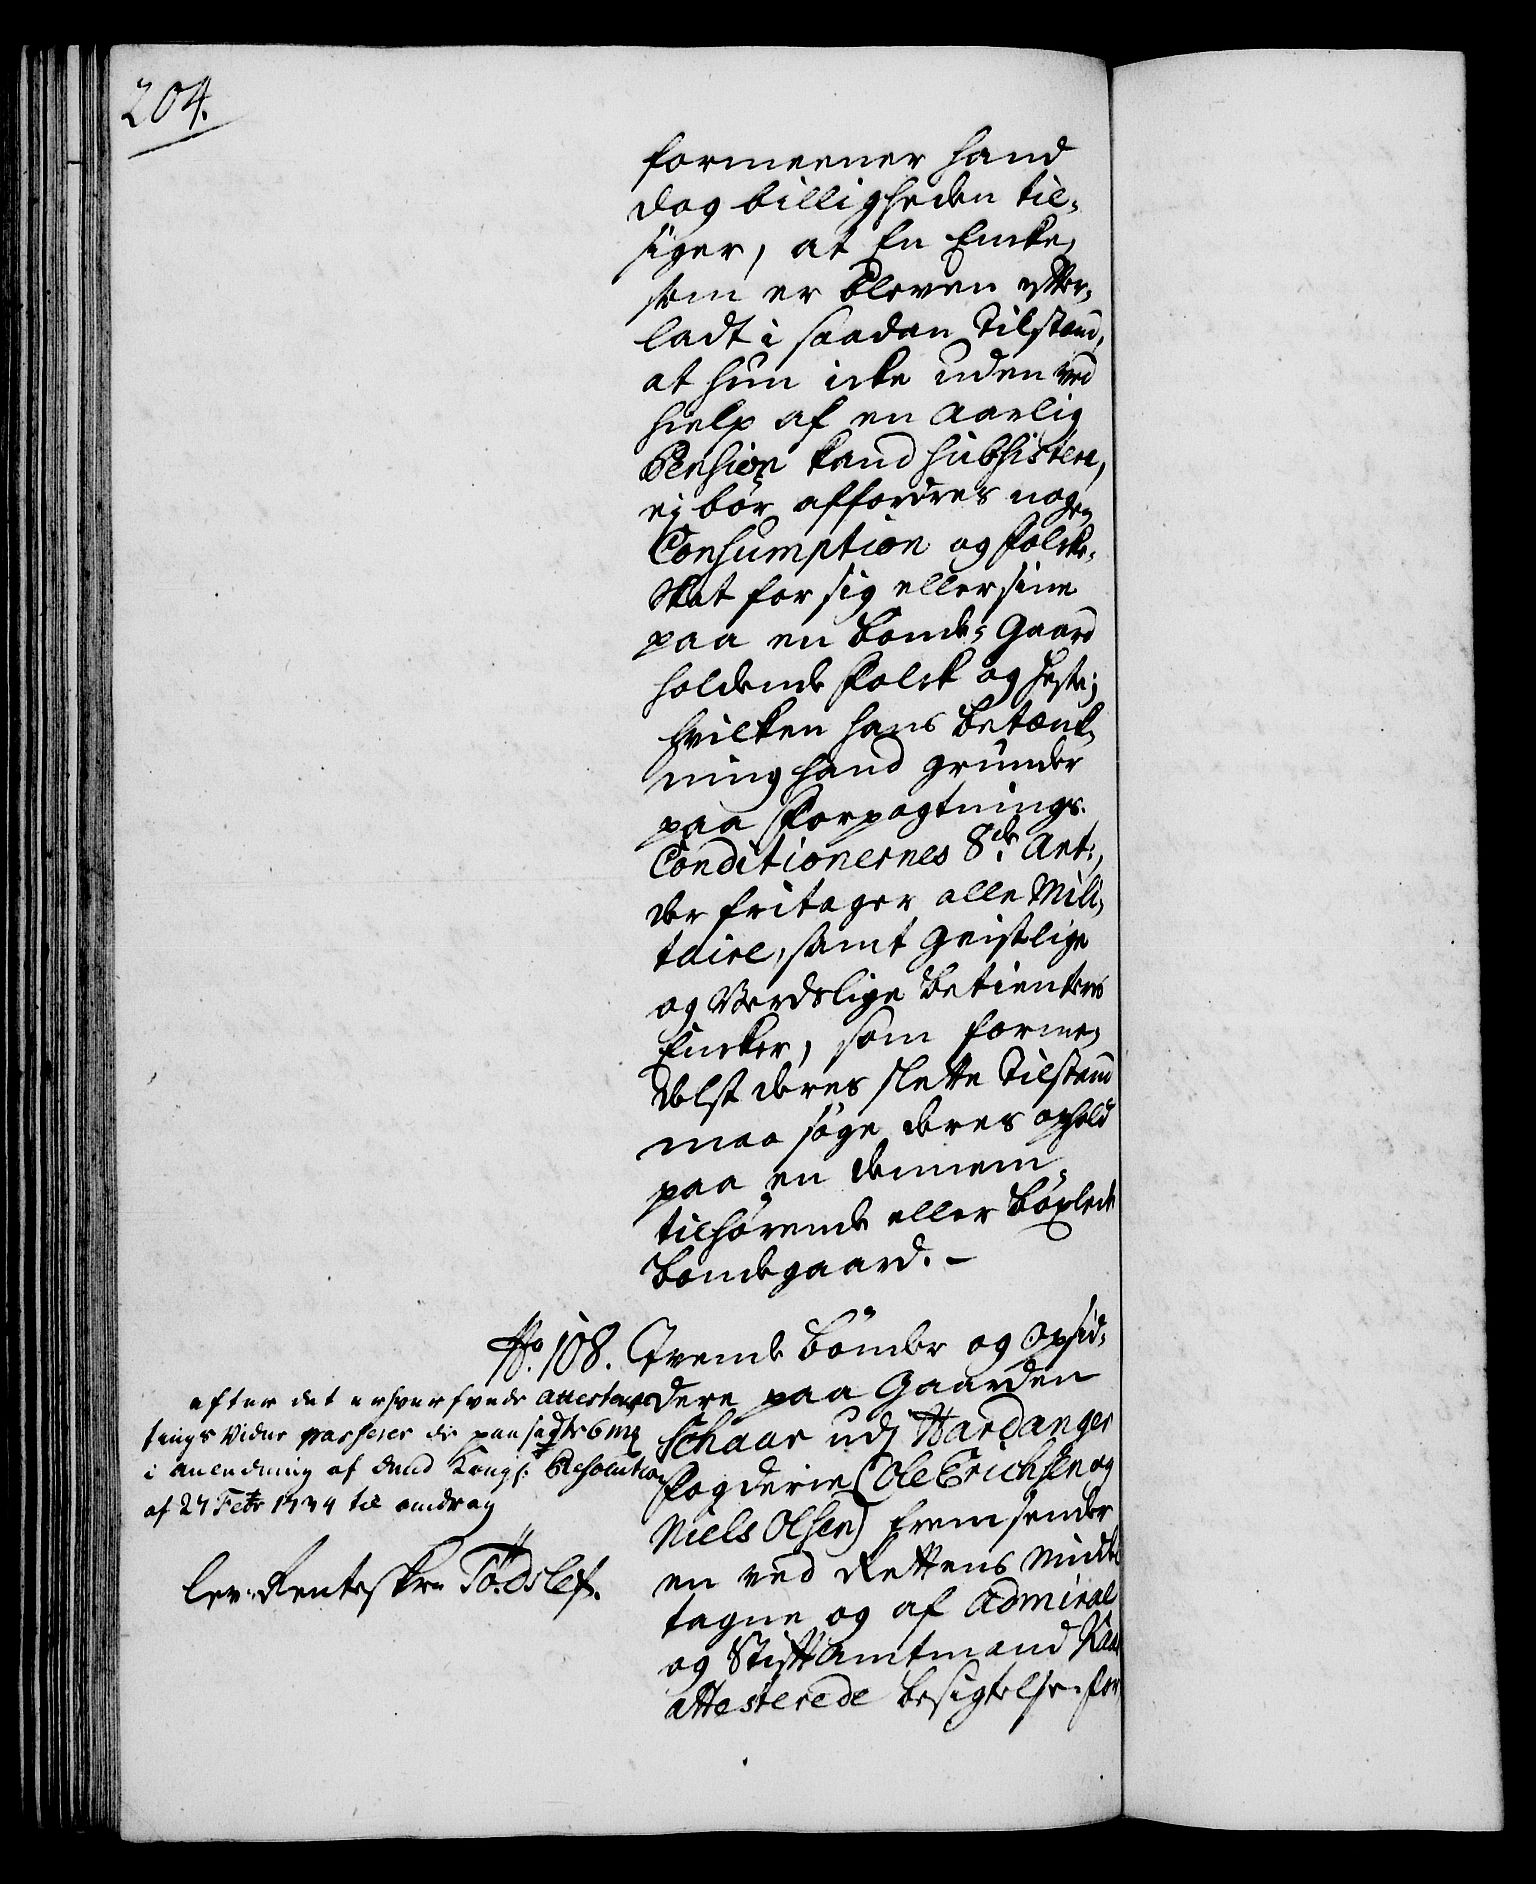 204.
formeener hand
dog billigheden til-
siger, at En Encke,
som er bleven effter-
ladt i saadan Tilstand,
at hun icke uden ved
hielp af en aarlig
Pension kand subsistere,
ej bør affordres nogen
Consumption og Folcke-
Skat for sig eller sine
paa en Bonde-Gaard
holdende Folck og Heste;
hvilken hans betænk-
ning hand grunder
paa Forpagtnings
Conditionernes 8de Art:,
der fritager alle Mili-
taire, samt Geistlige
og Verdslige Betienteres
Encker, som forme-
delst deres slette Tilstand
maa søge deres ophold
paa en dennem
tilhørende eller bøxlede
Bondegaard. -
No. 108. Tvende Bønder og Opsid-
dere paa Gaarden
Schaar udj Hardanger
Fogderie (Ole Erichsen og
Niels Olsen) fremsender
en ved Rettens Midde
tagne og af Admiral
og Stiftamtmand Kaas
attesterede besigtelse-for
efter det erhvervede attesta
tings Vidne passeres de
i anledning af dend Kongl: Resolution
af 27 Febr 1734 til omdrag
lev: Renteskr: